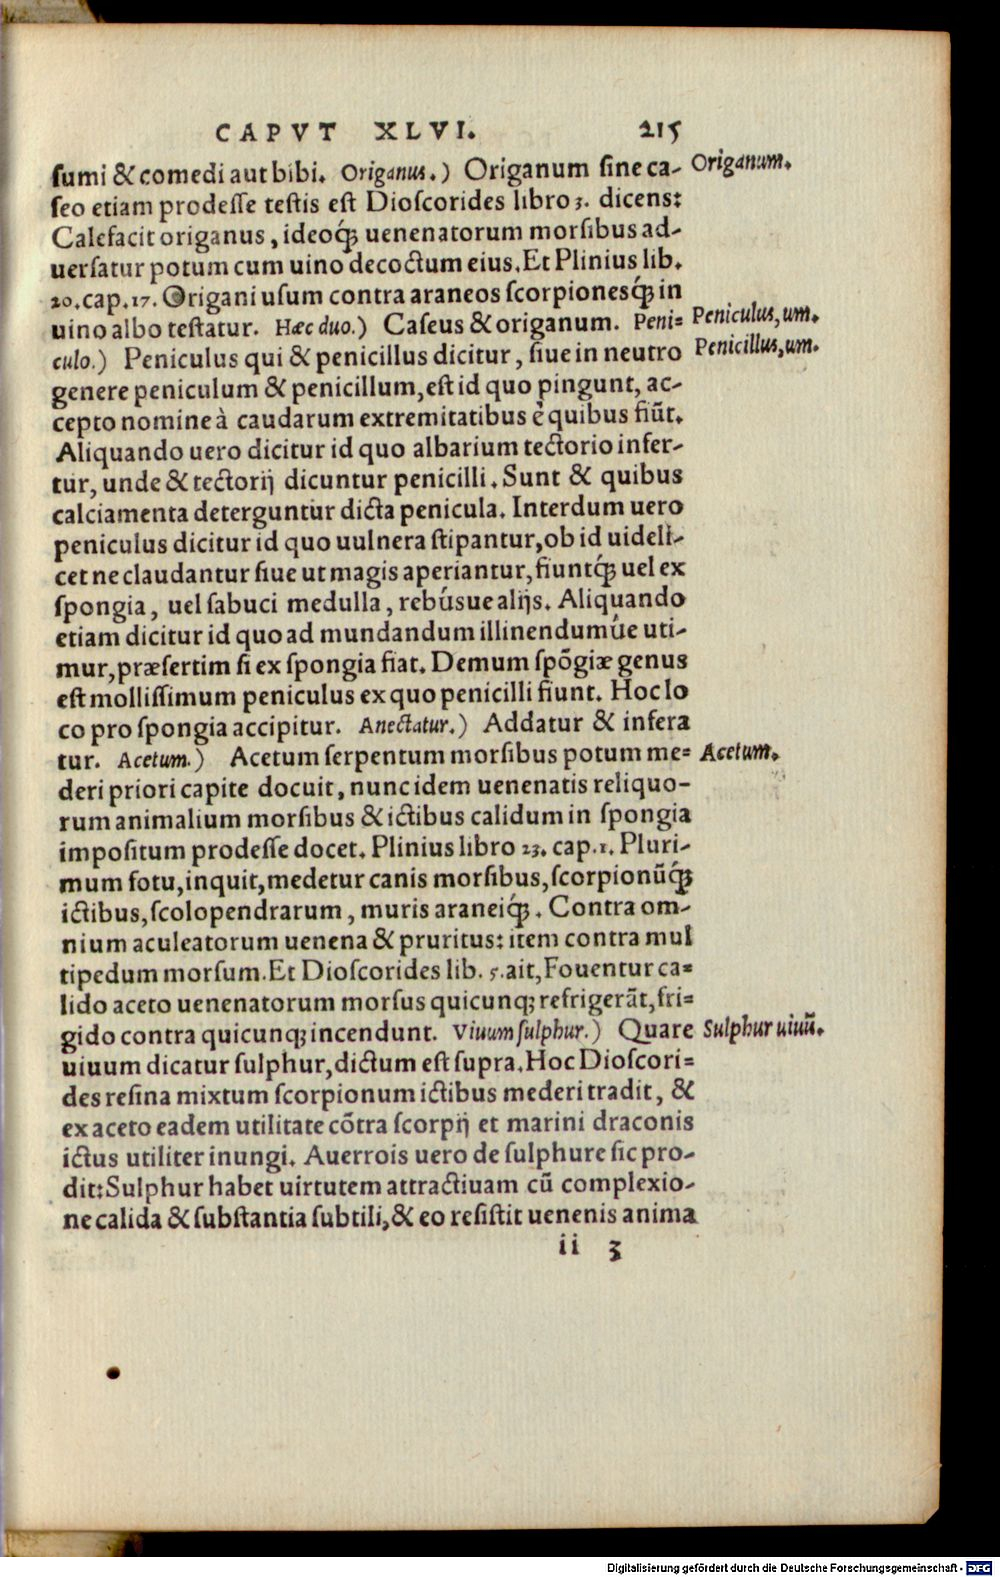 CAPVT XLVI. 215
sumi & comedi aut bibi. Origanus.) Origanum sine ca- Origanum.
seo etiam prodesse testis est Dioscorides libro 3. dicens:
Calefacit origanus, ideoq́ꝫ uenenatorum morsibus ad-
uersatur potum cum uino decoctum eius. Et Plinius lib.
20. cap. 17. Origani usum contra araneos scorpionesq́ꝫ in
uino albo testatur. Hæc duo.) Caseus & origanum. Peni= Peniculus, um.
culo.) Peniculus qui & penicillus dicitur, siue in neutro Penicillus, um.
genere peniculum & penicillum, est id quo pingunt, ac-
cepto nomine à caudarum extremitatibus è quibus fiūt.
Aliquando uero dicitur id quo albarium tectorio infer-
tur, unde & tectorij dicuntur penicilli. Sunt & quibus
calciamenta deterguntur dicta penicula. Interdum uero
peniculus dicitur id quo uulnera stipantur, ob id uideli-
cet ne claudantur siue ut magis aperiantur, fiuntq́ꝫ uel ex
spongia, uel sabuci medulla, rebúsue alijs. Aliquando
etiam dicitur id quo ad mundandum illinendumúe uti-
mur, præsertim si ex spongia fiat. Demum spōgiæ genus
est mollissimum peniculus ex quo penicilli fiunt. Hoc lo
co pro spongia accipitur. Anectatur.) Addatur & infera
tur. Acetum.) Acetum serpentum morsibus potum me= Acetum.
deri priori capite docuit, nunc idem uenenatis reliquo-
rum animalium morsibus & ictibus calidum in spongia
impositum prodesse docet. Plinius libro 23. cap. 1. Pluri-
mum fotu, inquit, medetur canis morsibus, scorpionūq́ꝫ
ictibus, scolopendrarum, muris araneiq́ꝫ. Contra om-
nium aculeatorum uenena & pruritus: item contra mul
tipedum morsum. Et Dioscorides lib. 5. ait, Fouentur ca=
lido aceto uenenatorum morsus quicunqꝫ refrigerāt, fri=
gido contra quicunqꝫ incendunt. Viuum sulphur.) Quare Sulphur uiuū.
uiuum dicatur sulphur, dictum est supra. Hoc Dioscori=
des resina mixtum scorpionum ictibus mederi tradit, &
ex aceto eadem utilitate cōtra scorpij et marini draconis
ictus utiliter inungi. Auerrois uero de sulphure sic pro-
dit: Sulphur habet uirtutem attractiuam cū complexio-
ne calida & substantia subtili, & eo resistit uenenis anima
ii 3
Digitalisierung gefördert durch die Deutsche Forschungsgemeinschaft - DFG